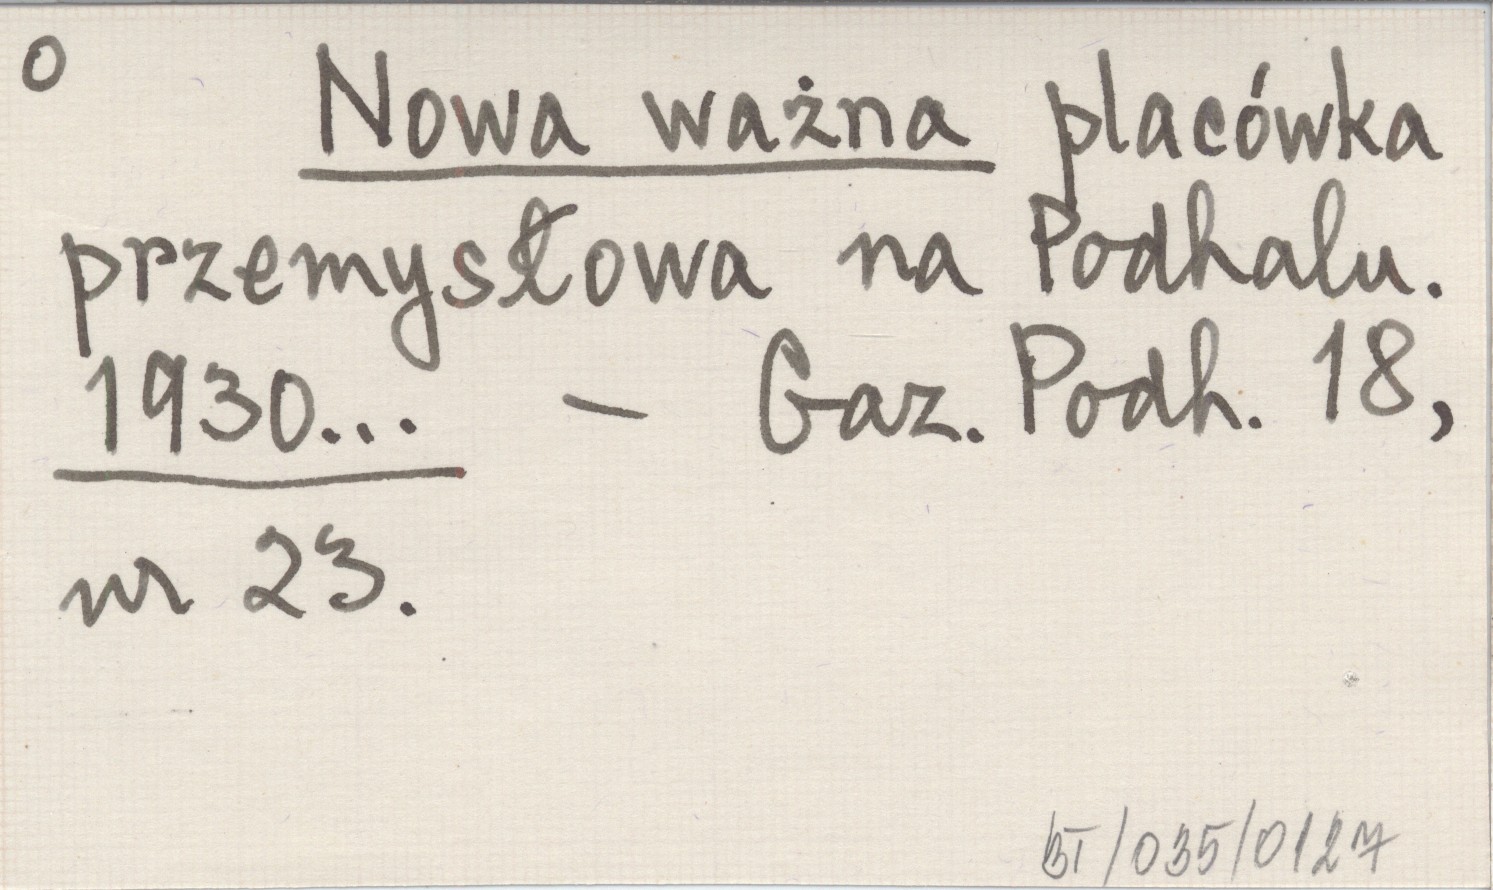 O
Nowa ważna placówka
przemysłowa na Podhalu.
1930... – Gaz. Podh. 18,
nr 23.
BT/035/0127